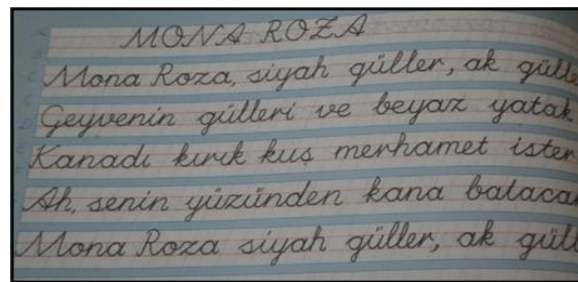 MONA ROZA
Mona Roza, siyah güller, ak gülle
Geyvenin gülleri ve beyaz yatak
Kanadı kırık kuş merhamet ister
Ah, senin yüzünden kana bataca
Mona Roza siyah güller, ak güll